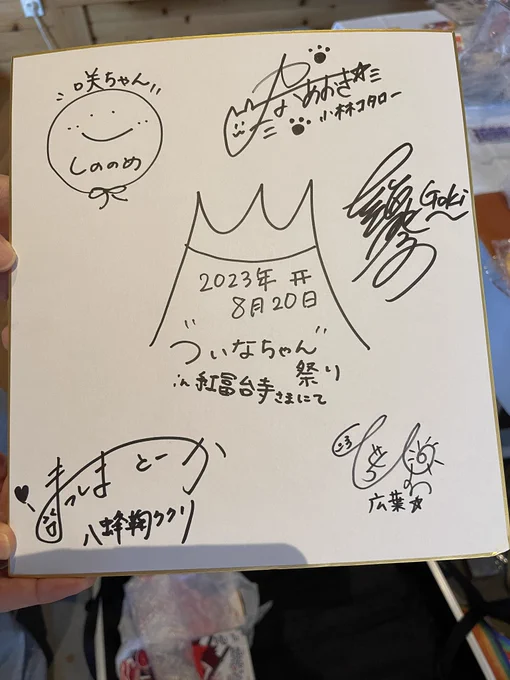 咲ちゃん
しののめ
小林コタロー
Goki
2023年
8月20日
"ついなちゃん"
祭り
in 紅冨台寺さまにて
まつしま とーか
八蜂鞠ククリ
広葉☆